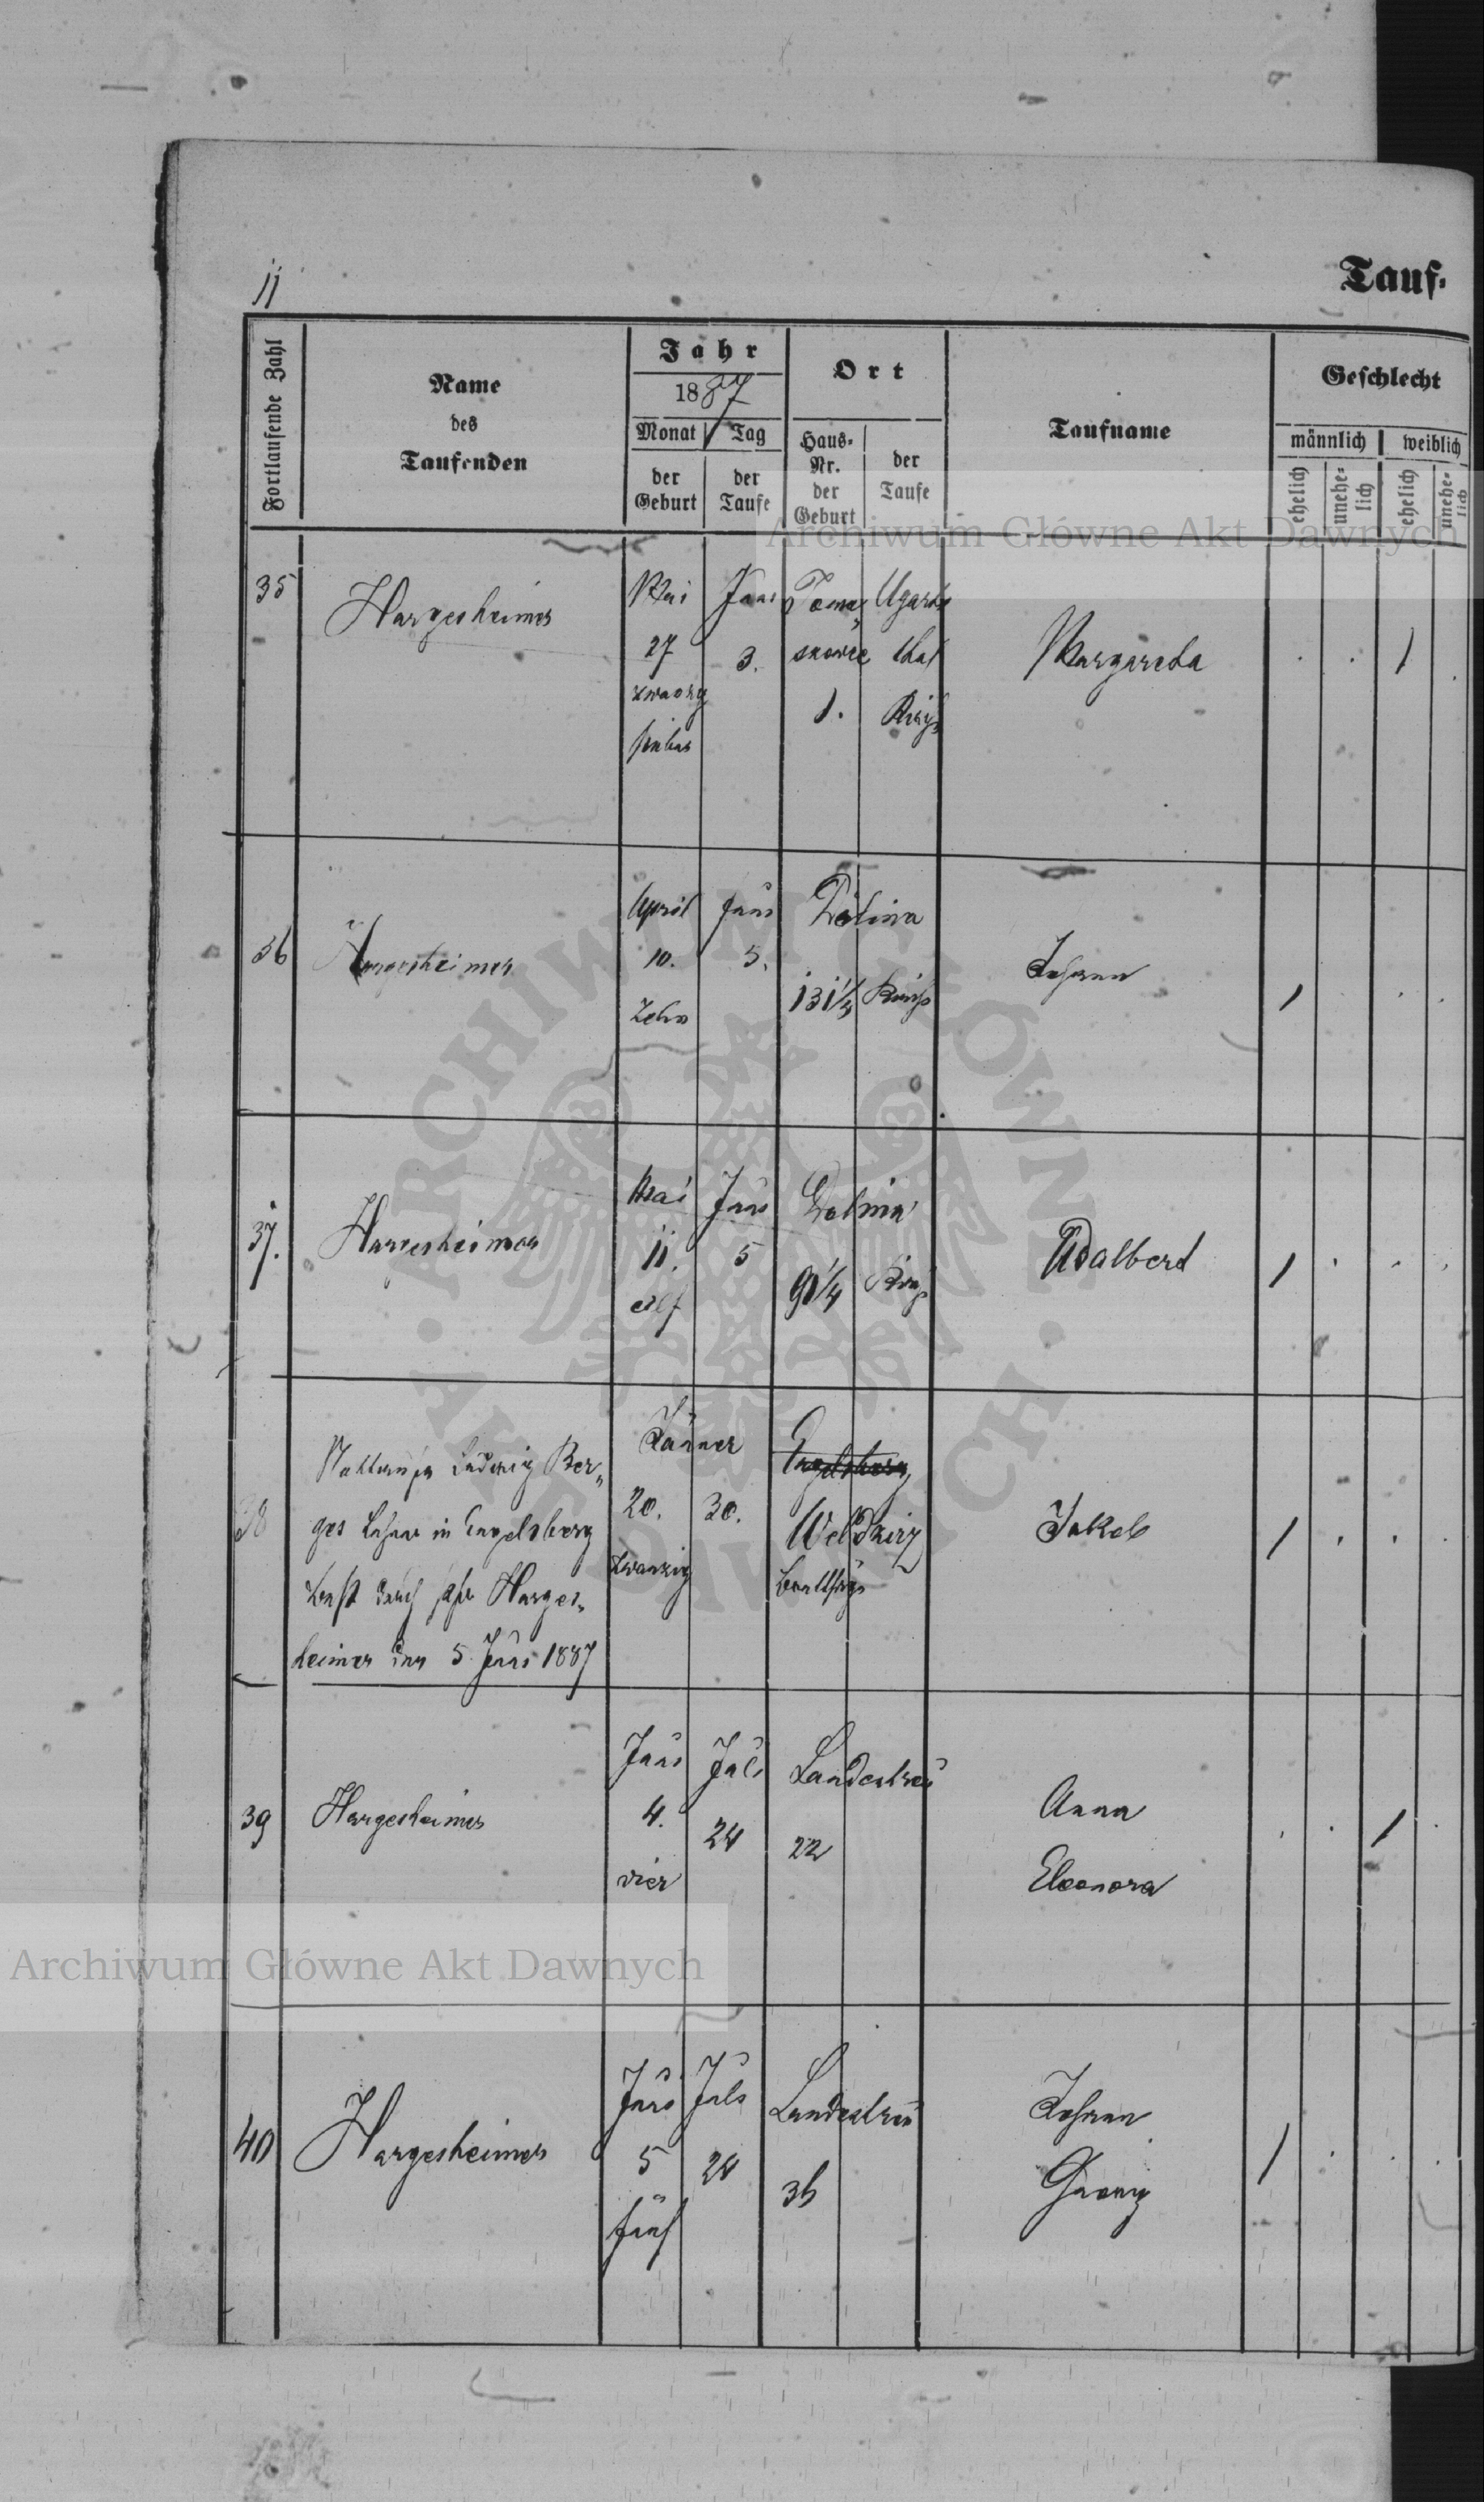 11
Tauf-
Fortlaufende Zahl
Name
des
Taufenden
Jahr
1887
Monat Tag
der Geburt
der Taufe
Ort
Haus-Nr. der Geburt
der Taufe
Taufname
Geschlecht
männlich weiblich
ehelich
unehe-lich
ehelich
unehe-lich
Archiwum Główne Akt Dawnych
35
Hargesheimer
Mai
27
zwanzig
sieben
Juni
3.
Tomas
zkowce
1.
Ugarts
thal
Margaretha
1
36
Hargesheimer
April
10.
Zehn
Juni
5.
Dolina
131/4
Johann
1
37.
Hargesheimer
Mai
11.
eilf
Juni
5
Dolina
91/4
Adalbert
1
38
Ludwig Ber-
ger Lehrer in Engelsberg
durch Harges-
heimer den 5. Juni 1887
Jänner
20.
zwanzig
30.
Engelsberg
Weldzirz
Jakob
1
39
Hargesheimer
Juni
4.
vier
Juli
24
Landestreu
22
Anna
Eleonora
1
Archiwum Główne Akt Dawnych
40
Hargesheimer
Juni
5
fünf
Juli
24
Landestreu
36
Johann
Georg
1
ARCHIWUM GŁÓWNE AKT DAWNYCH